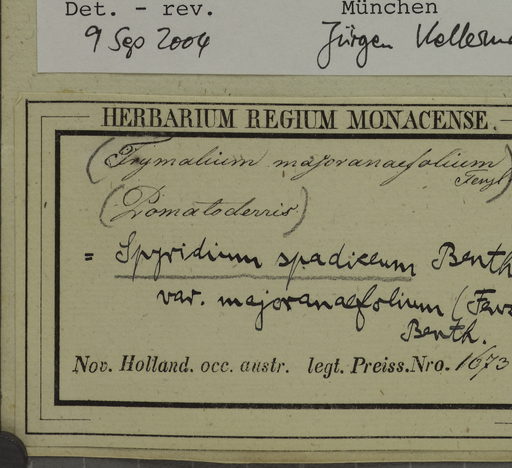 Det. - rev. München
9 Sep 2004 Jürgen Kellerma
HERBARIUM REGIUM MONACENSE.
(Trymalium majoranaefolium)
Fenzl
(Pomatoderris)
= Spyridium spadiceum Benth
var. majoranaefolium (Fenz
Benth.
Nov. Holland. occ. austr. legt. Preiss. Nro. 1673